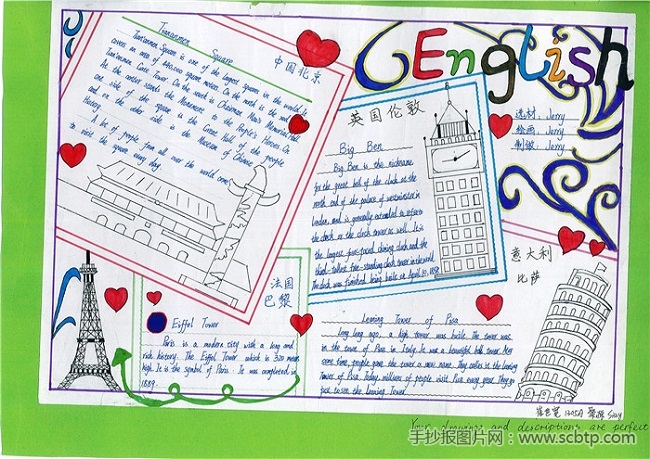 English
Tian'anmen Square
中国北京
Tian'anmen Square is one of the largest squares in the world. It
covers an area of 440,000 square meters. On the north is the
Tian'anmen Gate Tower. On the south is Chairman Mao's Memorial Hall.
At the centre stands the Monument to the People's Heroes. On
one side of the square is the Great Hall of the people
and on the other side is the Museum of Chinese
History.
A lot of people from all over the world come
to visit the square every day.
英国伦敦
Big Ben
Big Ben is the nickname
for the great bell of the clock at the
north end of the palace of westminster in
London, and is generally extended to refer to
the clock or the clock tower as well. It is
the largest four-faced chiming clock and the
third-tallest free-standing clock tower in the world.
The clock was finished being built on April 10, 1858.
选材: Jerry
绘画: Jerry
制版: Jerry
法国
巴黎
Eiffel Tower
Paris is a modern city with a long and
rich history. The Eiffel Tower which is 320 meters
high. It is the symbol of Paris. It was completed in
1889.
意大利
比萨
Leaning Tower of Pisa
Long long ago, a high tower was built. The tower was
in the town of Pisa in Italy. It was a beautiful bell tower. After
some time, people gave the tower a new name. They called it the Leaning
Tower of Pisa. Today millions of people visit Pisa every year. They go
just to see the Leaning Tower.
Your drawings and descriptions are perfect
手抄报图片网:www.scbtp.com